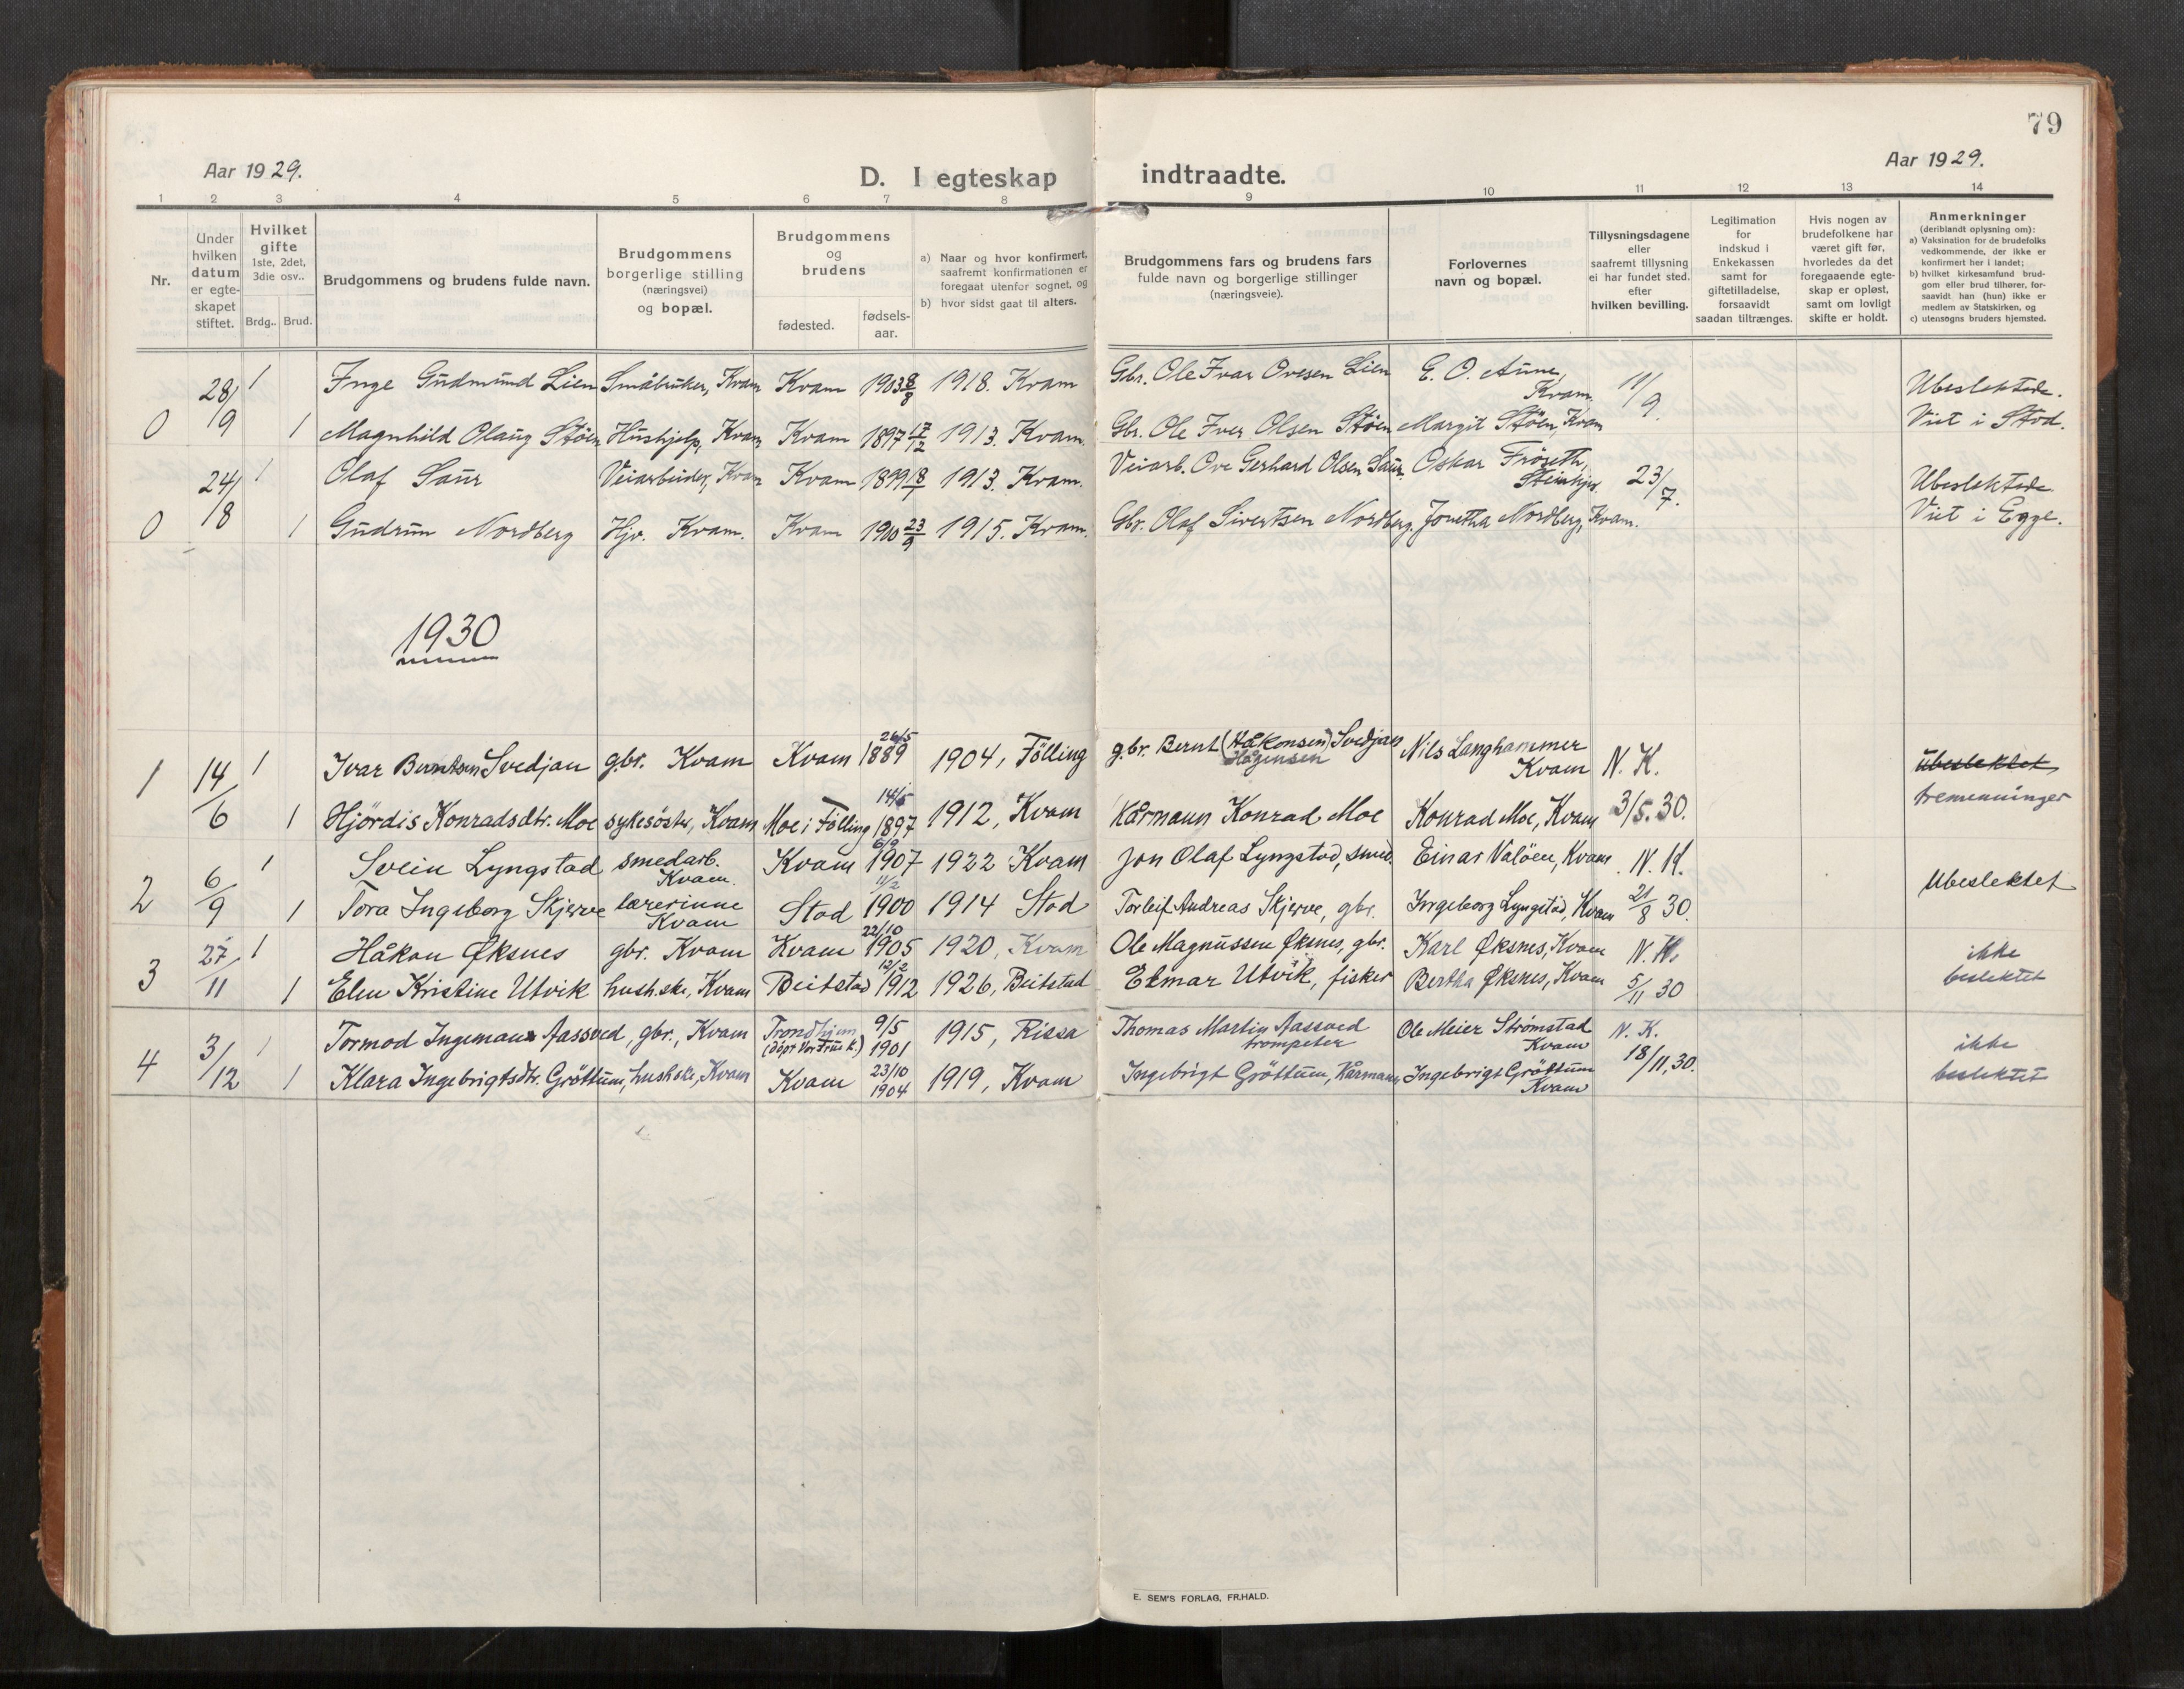 79
Aar 1929.
D. I egteskap indtraadte.
Aar 1929.
1 2 3 4 5 6 7 8 9 10 11 12 13 14
Nr.
Under hvilken datum er egte-skapet stiftet.
Hvilket gifte 1ste, 2det, 3die osv..
Brdg.. Brud.
Brudgommens og brudens fulde navn.
Brudgommens borgerlige stilling (næringsvei) og bopæl.
Brudgommens og brudens
fødested. fødsels-aar.
a) Naar og hvor konfirmert, saafremt konfirmationen er foregaat utenfor sognet, og
b) hvor sidst gaat til alters.
Brudgommens fars og brudens fars fulde navn og borgerlige stillinger (næringsveie).
Forlovernes navn og bopæl.
Tillysningsdagene eller saafremt tillysning ei har fundet sted. efter hvilken bevilling.
Legitimation for indskud i Enkekassen samt for giftetilladelse, forsaavidt saadan tiltrænges.
Hvis nogen av brudefolkene har været gift før, hvorledes da det foregaaende egte-skap er opløst, samt om lovligt skifte er holdt.
Anmerkninger (deriblandt oplysning om):
a) Vaksination for de brudefolks vedkommende, der ikke er konfirmert her i landet;
b) hvilket kirkesamfund brud-gom eller brud tilhører, for-saavidt han (hun) ikke er medlem av Statskirken, og
c) utensogns bruders hjemsted.
28/9 1 Inge Gudmund Lien Småbruker, Kvam Kvam 1903 8/8 1918. Kvam Gbr. Ole Ivar Ovesen Lien E. O. Aune, Kvam. 11/9 Ubeslektede.
0 1 Magnhild Olaug Støen Hushjelp, Kvam Kvam 1897 17/12 1913. Kvam. Gbr. Ole Iver Olsen Støen Margit Støen, Kvam Viet i Stod.
24/8 1 Olaf Saur Veiarbeider, Kvam Kvam 1899 18/1 1913. Kvam. Veiarb. Ove Gerhard Olsen Saur. Oskar Frøseth, Steinkjer. 23/7. Ubeslektede
0 1 Gudrun Nordberg Hjv. Kvam. Kvam 1900 23/9 1915. Kvam. Gbr. Olaf Sivertsen Nordberg. Jonetha Nordberg, Kvam. Viet i Egge.
1930
1 14/6 1 Ivar Berntsen Svedjan gbr. Kvam Kvam 26/5 1889 1904, Fölling g.br. Bernt (Håkonsen) Svedjan Hågensen Nils Langhammer Kvam N. K. ubeslektet,
1 Hjördis Konradsdtr. Moe sykesøster, Kvam Moe i Fölling 14/5 1897 1912, Kvam Kårmann Konrad Moe Konrad Moe, Kvam 3/5. 30. tremenninger
2 6/9 1 Svein Lyngstad smedarb. Kvam. Kvam 6/9 1907 1922 Kvam Jon Olaf Lyngstad, smed. Einar Valöen, Kvam N. K. Ubeslektet
1 Tora Ingeborg Skjerve lærerinne Kvam Stod 11/2 1900 1914 Stod Torleif Andreas Skjerve, gbr. Ingeborg Lyngstad, Kvam 21/8 30.
3 27/11 1 Håkon Øksnes gbr. Kvam Kvam 22/10 1905 1920, Kvam Ole Magnussen Øksnes, gbr. Karl Øksnes, Kvam N. K. ikke
1 Elen Kristine Utvik hush.ske, Kvam Beitstad 12/2 1912 1926, Beitstad Elmar Utvik, fisker Bertha Øksnes, Kvam 5/11 30 beslektet
4 3/12 1 Tormod Ingemann Aassved, gbr., Kvam Trondhjem (döpt Vor Frue k.) 9/5 1901 1915, Rissa Thomas Martin Aassved trompeter Ole Meier Strømstad Kvam N. K. ikke
1 Klara Ingebrigtsdtr. Gröttum, hushske, Kvam Kvam 23/10 1904 1919, Kvam Ingebrigt Gröttum, Kårmann Ingebrigt Gröttum Kvam 18/11, 30. beslektet
E. SEM'S FORLAG, FR.HALD.